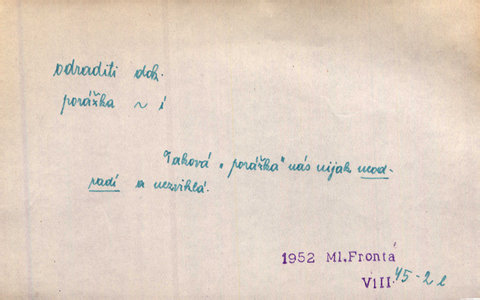 odraditi dok.
porážka ~ í
Taková „porážka" nás nijak neod-
radí a nezviklá.
1952 Ml.Fronta
VIII. 45-2 l